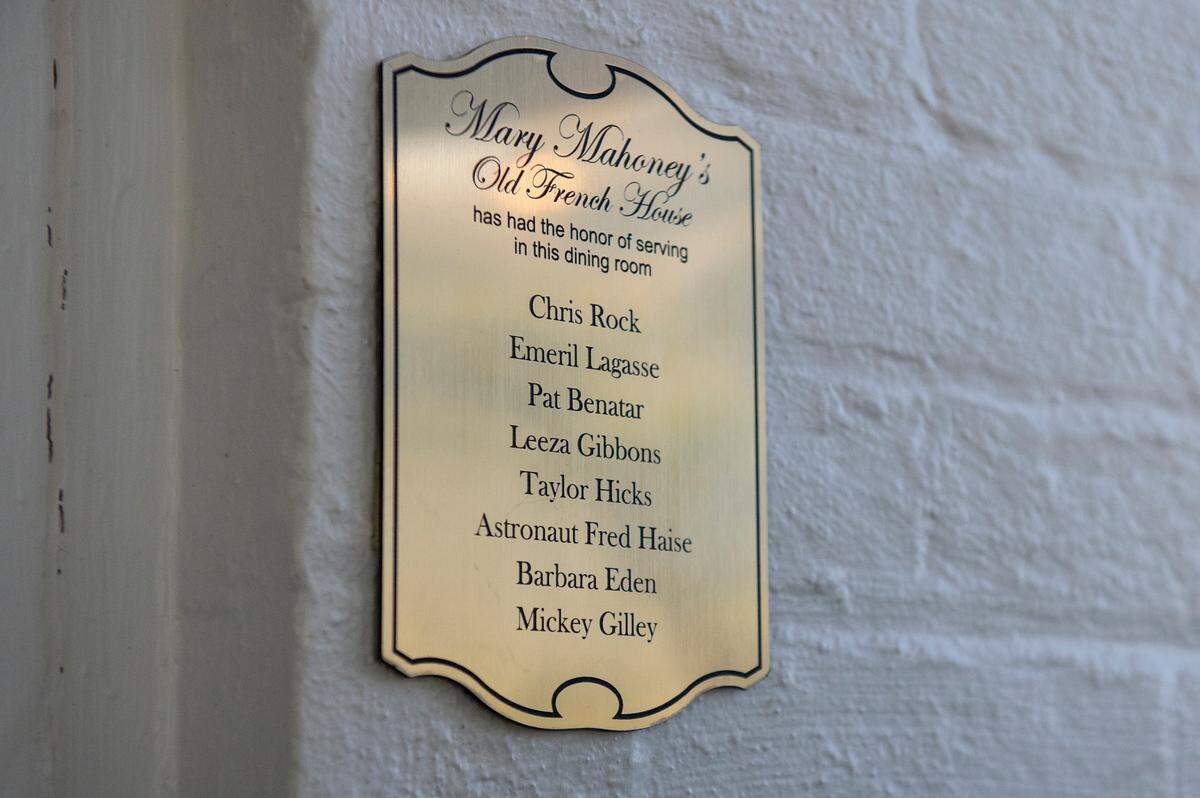 Mary Mahoney's
Old French House
has had the honor of serving
in this dining room
Chris Rock
Emeril Lagasse
Pat Benatar
Leeza Gibbons
Taylor Hicks
Astronaut Fred Haise
Barbara Eden
Mickey Gilley